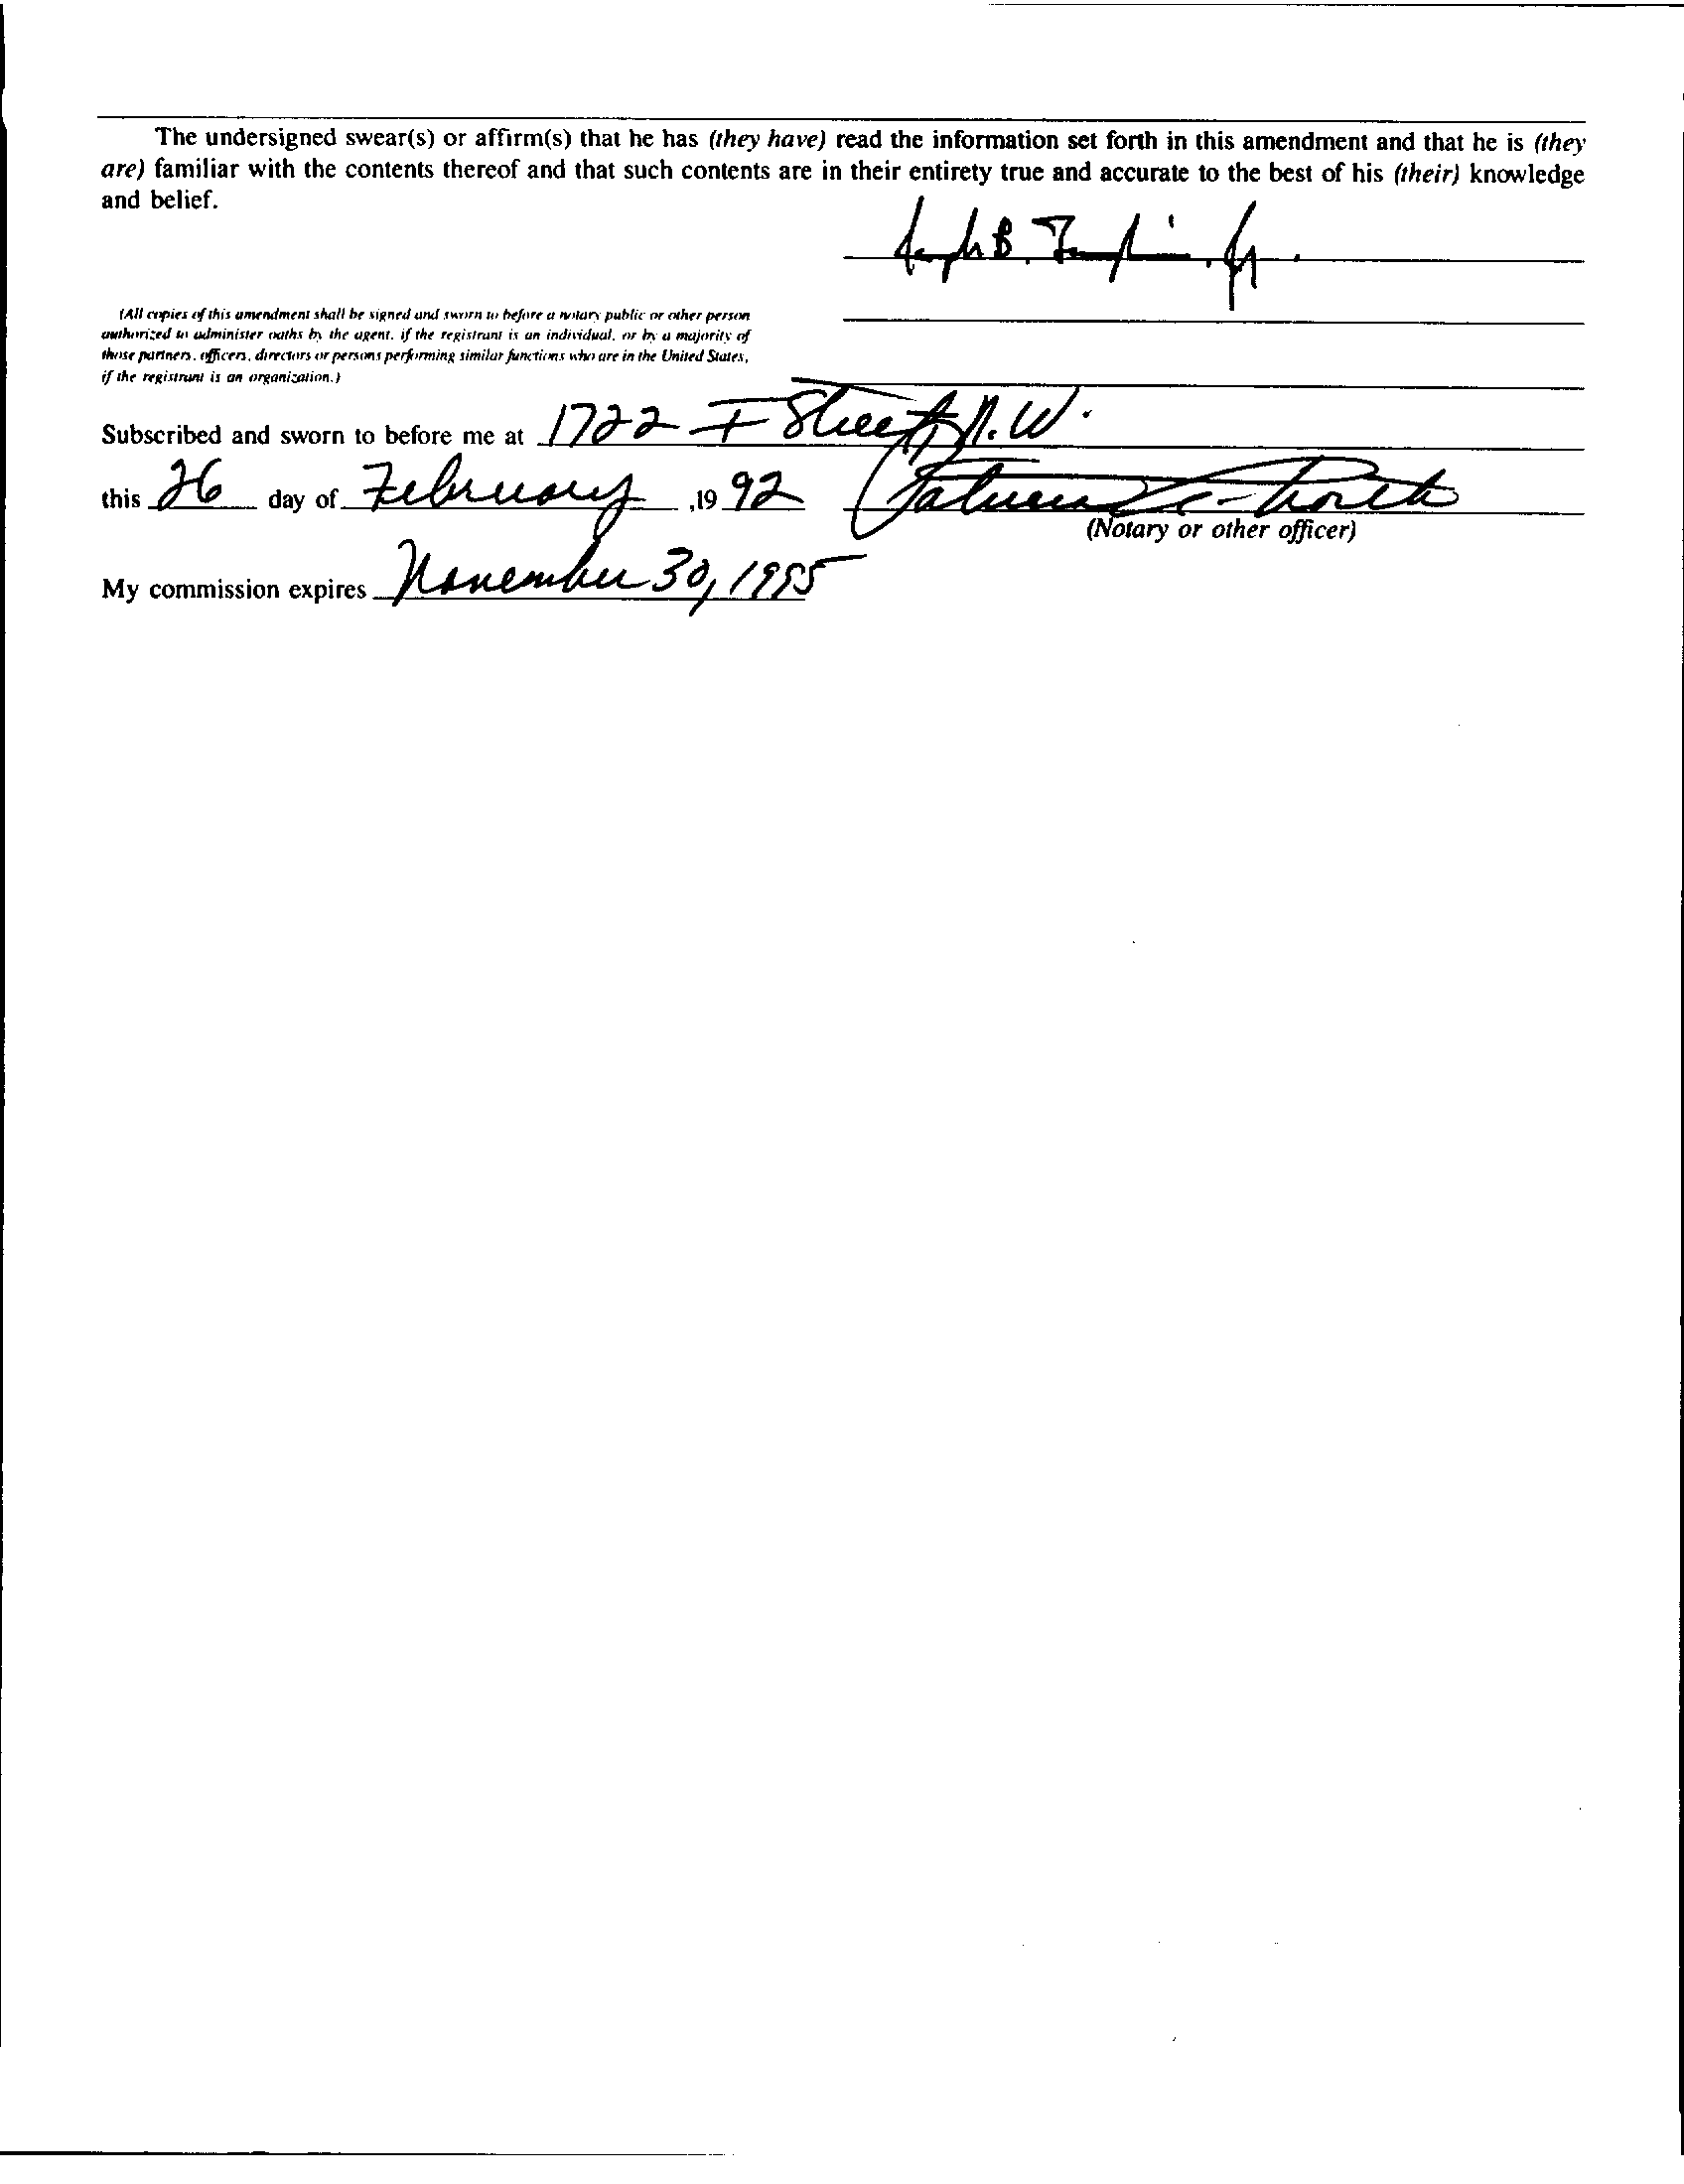 The undersigned swear(s) or affirm(s) that he has (they have) read the information set forth in this amendment and that he is (they
are) familiar with the contents thereof and that such contents are in their entirety true and accurate to the best of his (their) knowledge
and belief.
B. Jr.
(All copies of this amendment shall be signed and sworn to before a notary public or other person
authorized to administer oaths by the agent, if the registrant is an individual, or by a majority of
those partners, officers, directors or persons performing similar functions who are in the United States,
if the registrant is an organization.)
Subscribed and sworn to before me at 1722 I Street, N.W.
this 26 day of February ,19 92
(Notary or other officer)
My commission expires November 30, 1995